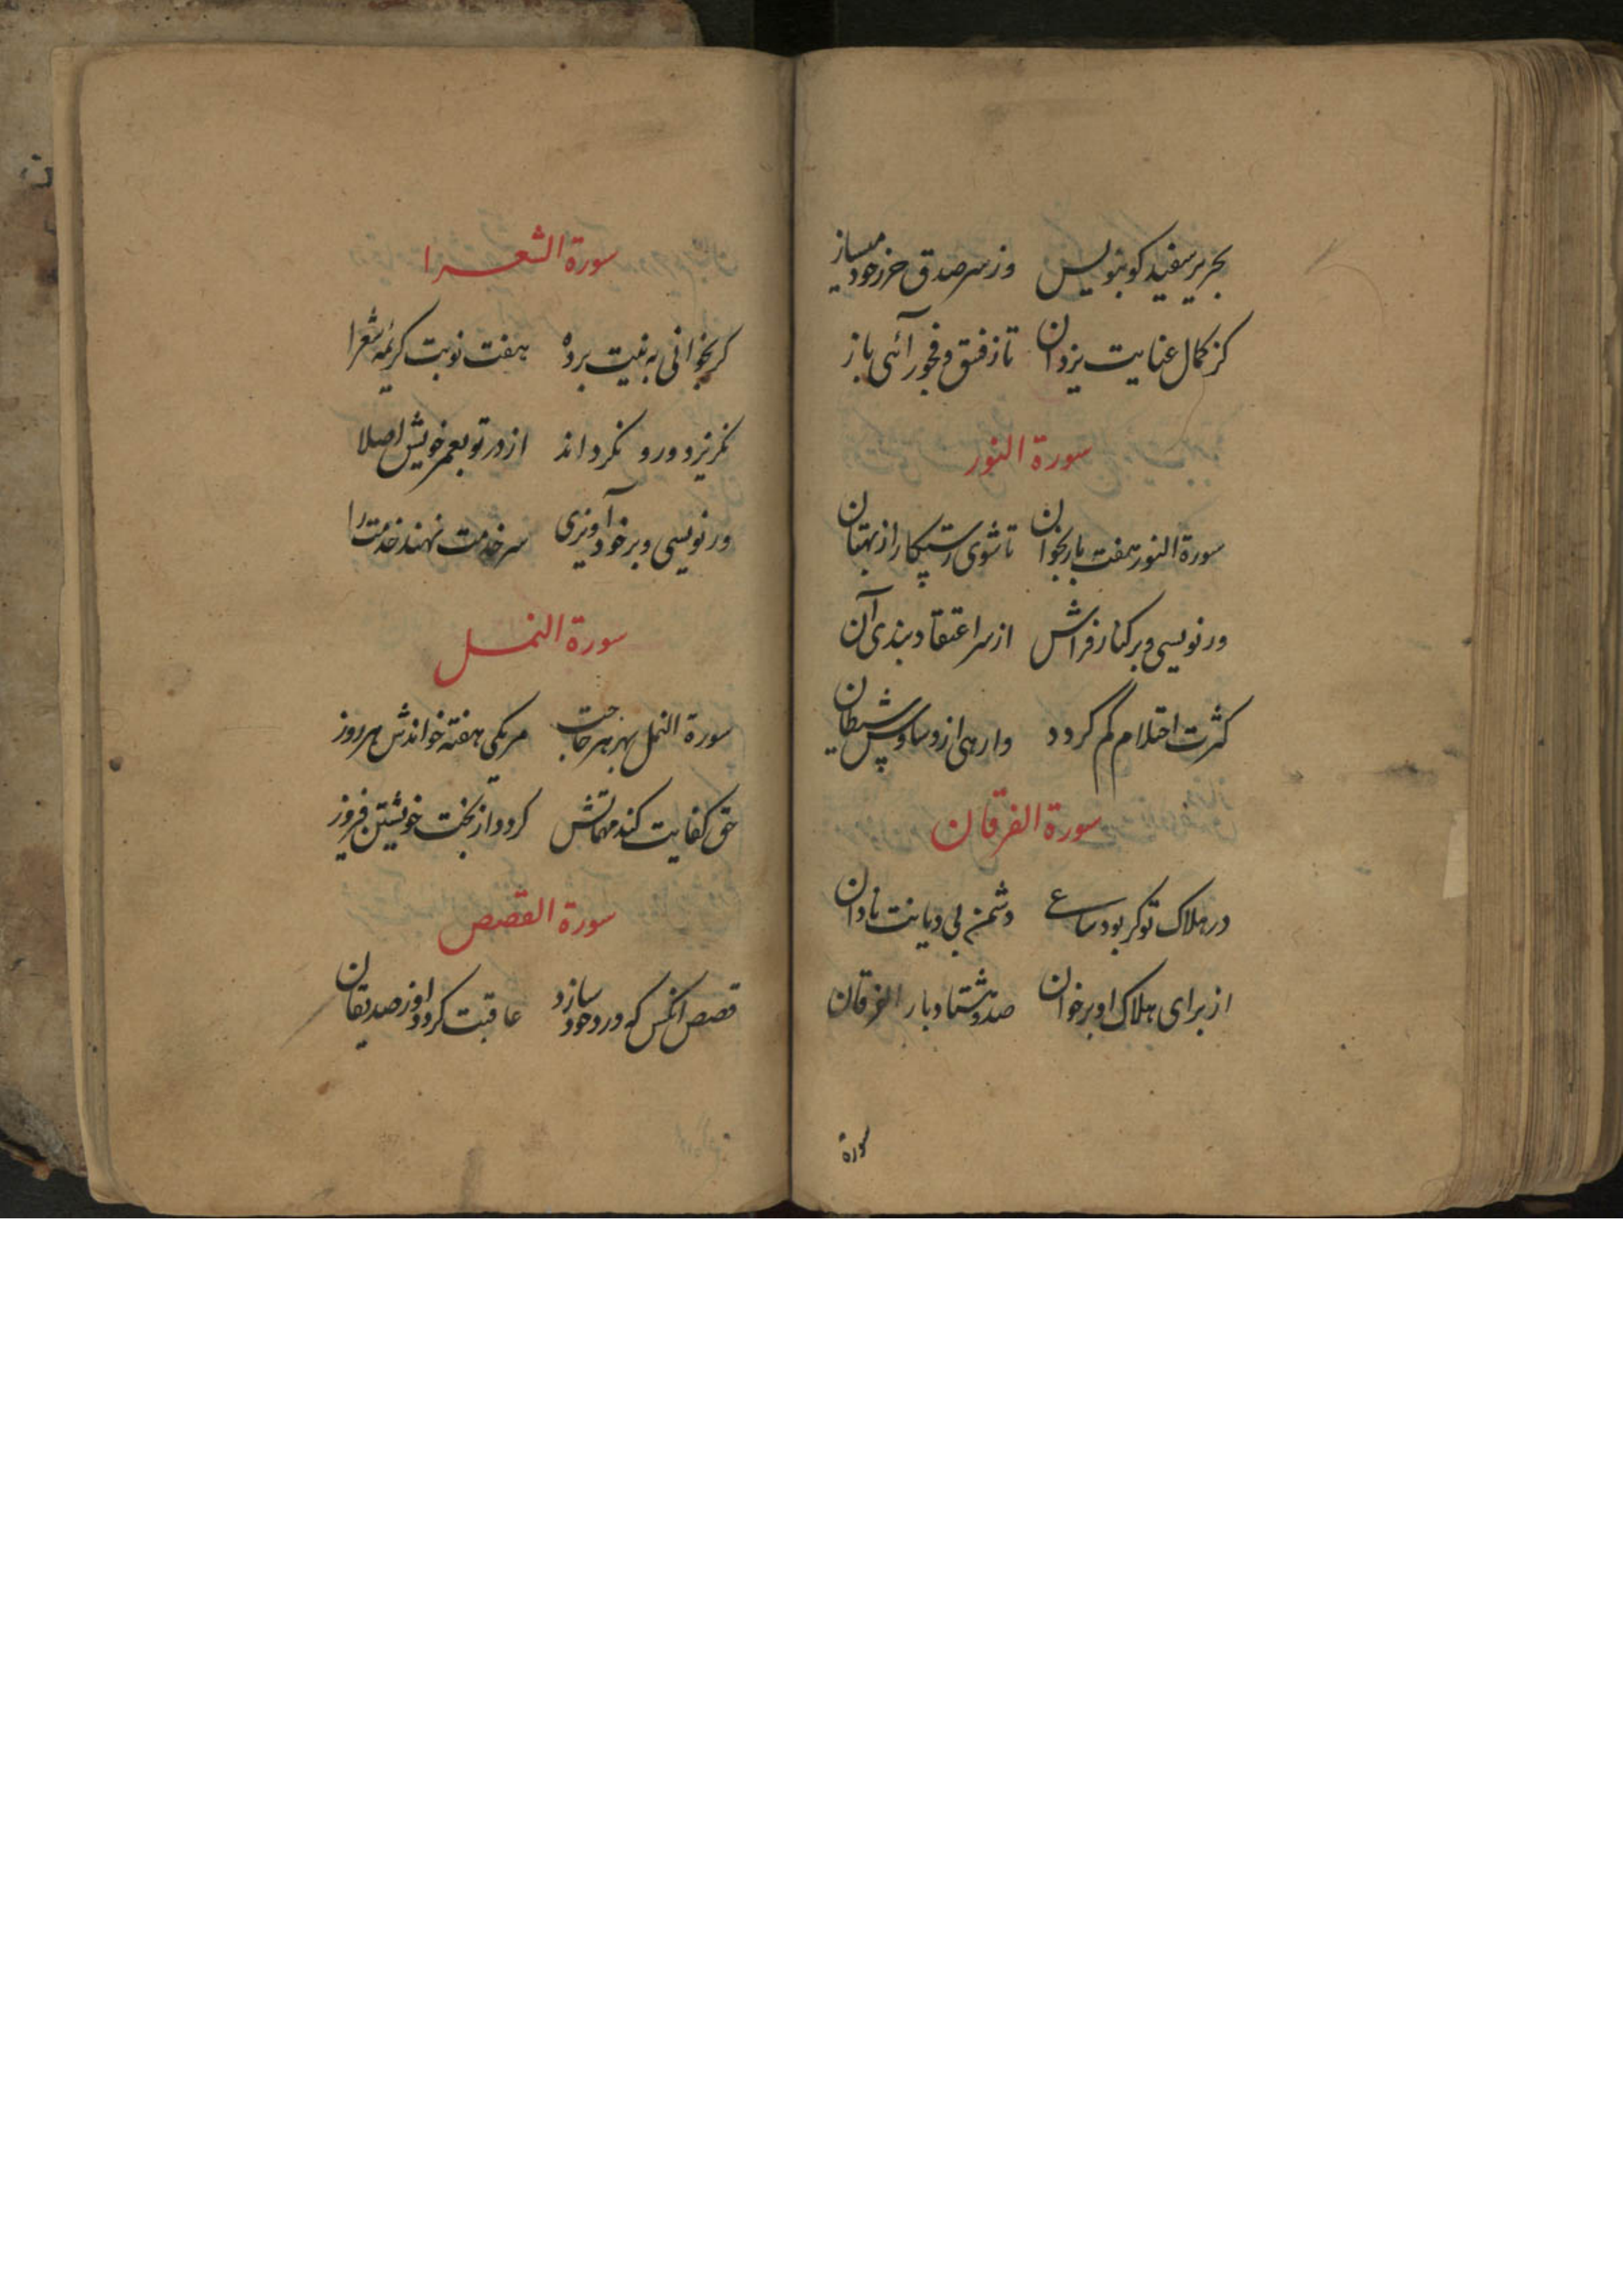 بحریر سفید کو بنویس وز سر صدق حرز خود میساز
کز کمال عنایت یزدان تا ز فسق و فجور آئی باز
سورة النور
سورة النور هفت بار بخوان تا شوی رستکار از بهتان
ور نویسی و بر کنار فراش از سر اعتقاد بندی آن
کثرت احتلام کم کردد وارهی از وساوس شیطان
سورة الفرقان
در هلاک تو کر بود ساعی دشمن بی دیانت نادان
از برای هلاک او بر خوان صد و هشتاد بار الفرقان
سورة
سورة الشعرا
کر بخوانی به نیت برده هفت نوبت کریمه شعرا
نکریزد ورو نکرداند از در تو بعمر خویش اصلا
ور نویسی و بر خود آویزی سر خدمت نهند خدمت را
سورة النمل
سورة النمل بهر هر حاجت هر یکی هفته خواندش هر روز
حق کفایت کند مهماتش کردد از بخت خویشتن فیروز
سورة القصص
قصص انکس که ورد خود سازد عاقبت کردد او ز صدیقان